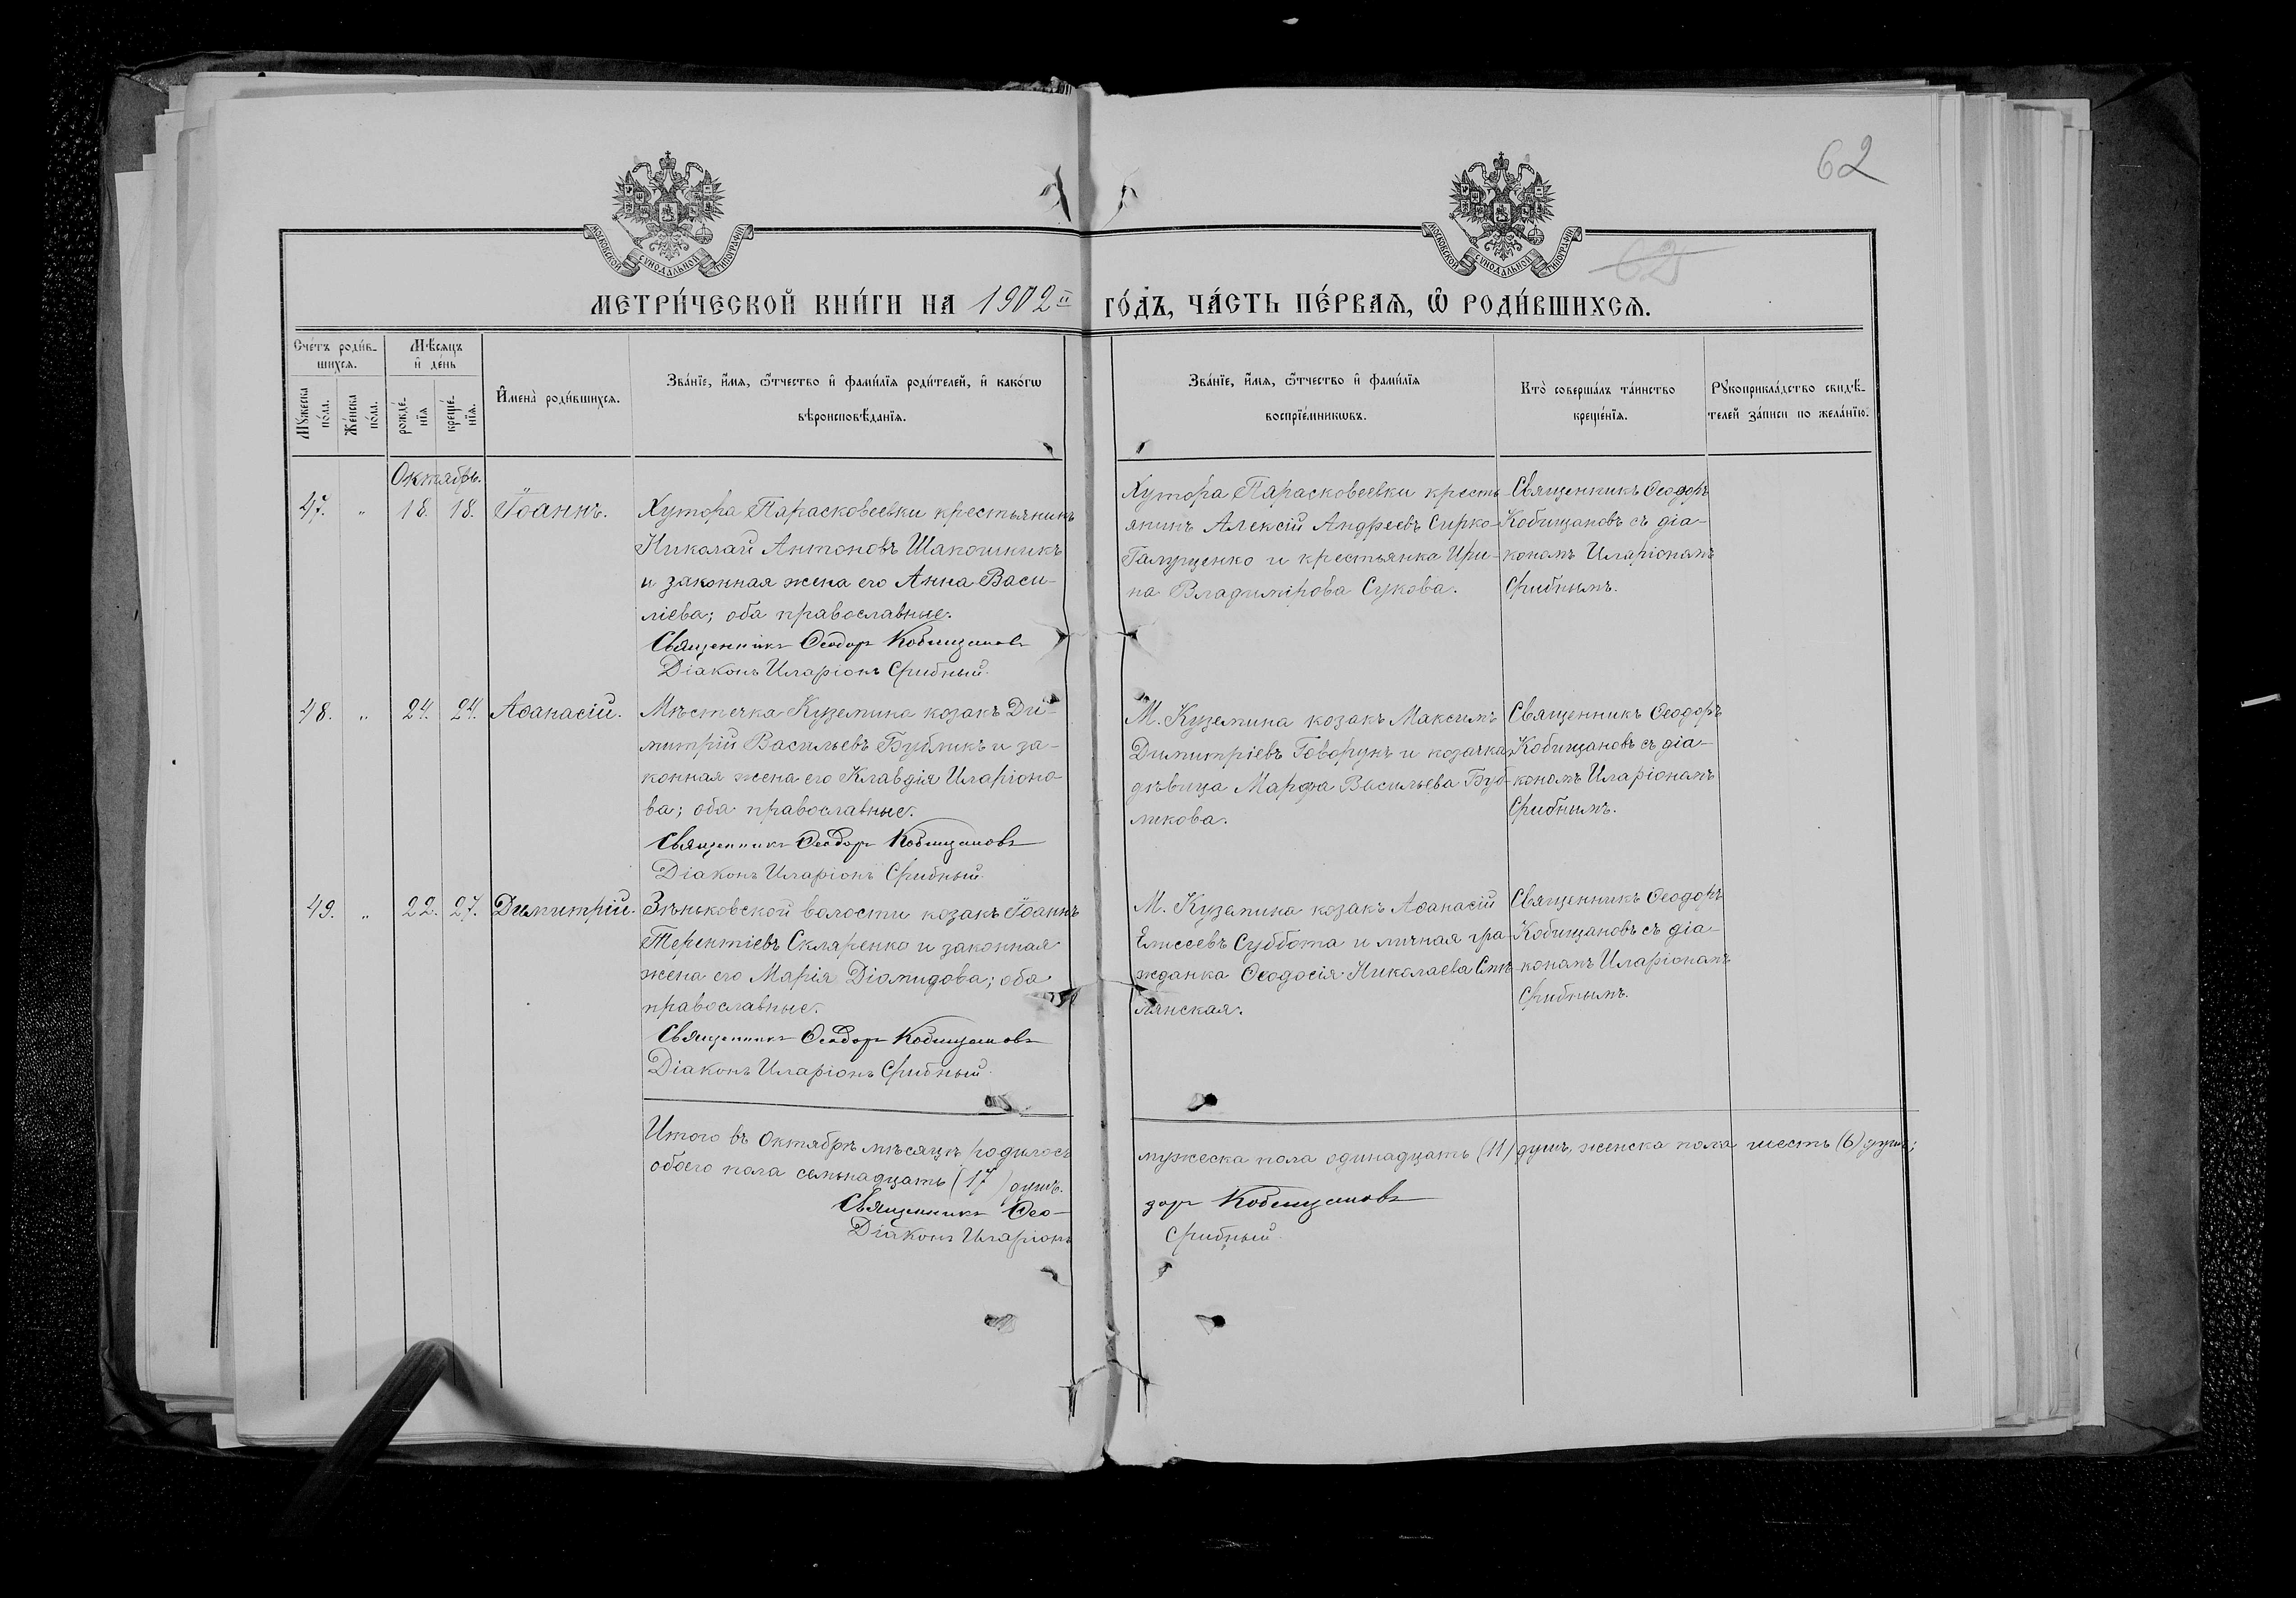 62
МОСКОВСКОЙ СѴНОДАЛЬНОЙ ТИПОГРАФІИ
МОСКОВСКОЙ СѴНОДАЛЬНОЙ ТИПОГРАФІИ
62
МЕТРИ́ЧЕСКОЙ КНИ́ГИ НА 1902й ГО́ДЪ, ЧА́СТЬ ПЕ́РВАѦ, Ѡ҆ РОДИ́ВШИХСѦ.
Сче́тъ роди́в-
шихся.
Мꙋ́жеска
по́ла.
Же́нска
по́ла.
Мѣ́сяцъ
и҆ де́нь
рожде́-
нїя
креще́-
нїя.
И҆мена̀ роди́вшихся.
Зва́нїе, и҆́мя, ѻ҆́тчество и҆ фами́лїя роди́телей, и҆ како́гѡ
вѣроисповѣ́данїя.
Зва́нїе, и҆́мя, ѻ҆́тчество и҆ фами́лїя
воспрїе́мникѡвъ.
Кто̀ соверша́лъ та́инство
креще́нїя.
Рꙋкоприкла́дство свидѣ́-
телей за́писи по жела́нїю.
Октябрь.
47. „ 18. 18. Іоаннъ.
Хутора Парасковеевки крестьянинъ
Николай Антоновъ Шапошникъ
и законная жена его Анна Васи-
ліева; оба православные.
Священникъ Ѳеодоръ Кобищановъ
Діаконъ Иларіонъ Срибный.
Хутора Парасковеевки кресть-
янинъ Алексій Андреевъ Сирко-
Галущенко и крестьянка Ири-
на Владимірова Сукова.
Священникъ Ѳеодоръ
Кобищановъ съ діа-
кономъ Иларіономъ
Срибнымъ.
48. „ 24. 24. Аѳанасій.
Мѣстечка Куземина козакъ Ди-
митрій Васильевъ Бубликъ и за-
конная жена его Клавдія Иларіоно-
ва; оба православные.
Священникъ Ѳеодоръ Кобищановъ
Діаконъ Иларіонъ Срибный.
М. Куземина козакъ Максимъ
Димитріевъ Говорунъ и козачка
дѣвица Марфа Васильева Буб-
ликова.
Священникъ Ѳеодоръ
Кобищановъ съ діа-
кономъ Иларіономъ
Срибнымъ.
49. „ 22. 27. Димитрій.
Зѣньковской волости козакъ Іоаннъ
Терентіевъ Скляренко и законная
жена его Марія Діомидова; оба
православные.
Священникъ Ѳеодоръ Кобищановъ
Діаконъ Иларіонъ Срибный.
М. Куземина козакъ Аѳанасій
Елисеевъ Суббота и личная гра-
жданка Ѳеодосія Николаева Смѣ-
лянская.
Священникъ Ѳеодоръ
Кобищановъ съ діа-
кономъ Иларіономъ
Срибнымъ.
Итого въ Октябрѣ мѣсяцѣ родилось мужеска пола одинадцать (11) душъ, женска пола шесть (6) душъ;
обоего пола семьнадцать (17) душъ.
Священникъ Ѳео-доръ Кобищановъ
Діаконъ Иларіонъ Срибный.